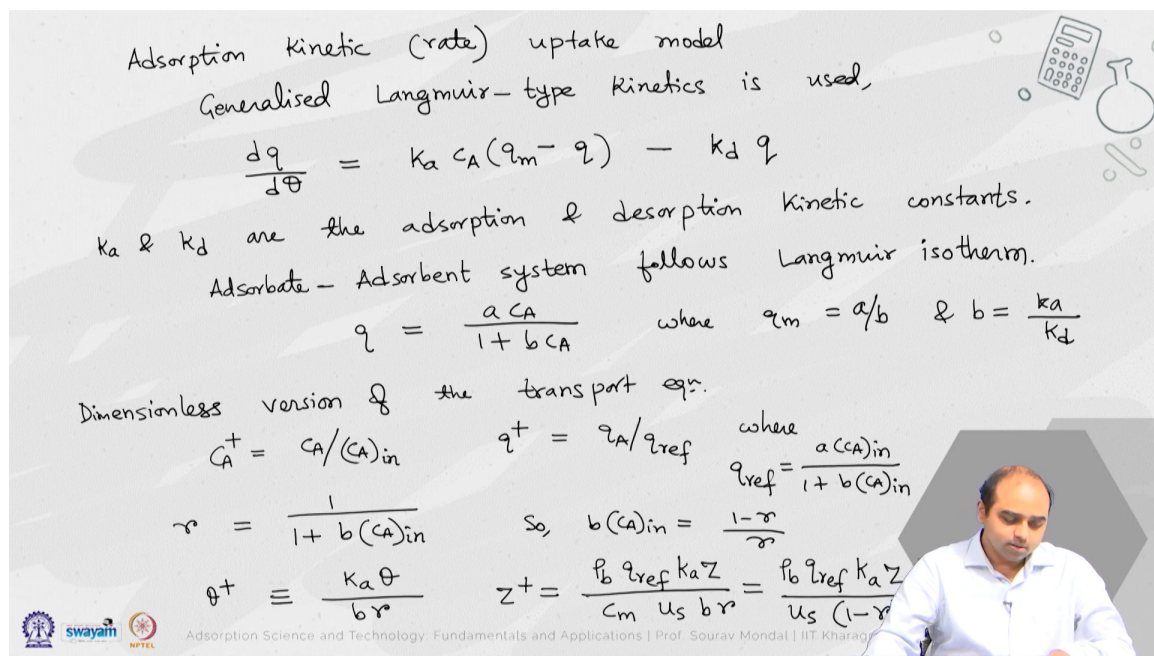 Adsorption kinetic (rate) uptake model
Generalised Langmuir-type kinetics is used,
dq/dθ = ka CA (qm - q) - kd q
ka & kd are the adsorption & desorption kinetic constants.
Adsorbate - Adsorbent system follows Langmuir isotherm.
q = a CA / 1 + b CA where qm = a/b & b = ka/kd
Dimensionless version of the transport eqn.
CA+ = CA/(CA)in q+ = qA/qref where qref = a(CA)in / 1 + b(CA)in
r = 1 / 1 + b(CA)in So, b(CA)in = 1-r / r
θ+ ≡ ka θ / b r z+ = ρb qref ka z / Cm us b r = ρb qref ka z / us (1-r
swayam
NPTEL
Adsorption Science and Technology: Fundamentals and Applications | Prof. Sourav Mondal | IIT Kharagp